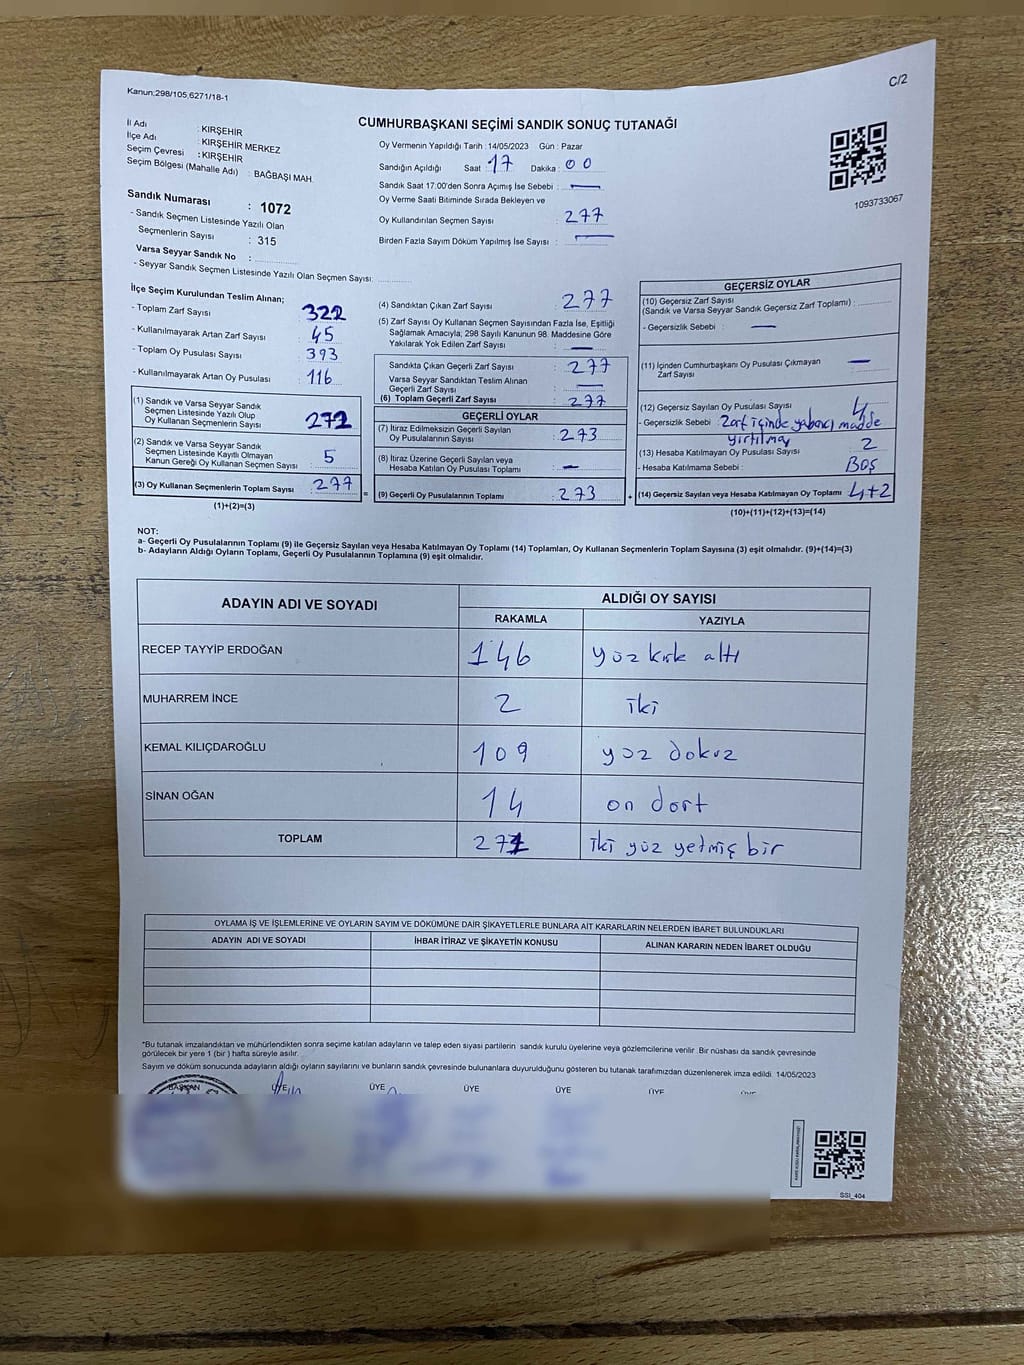 C/2
Kanun;298/105,6271/18-1
CUMHURBAŞKANI SEÇİMİ SANDIK SONUÇ TUTANAĞI
İl Adı : KIRŞEHİR
İlçe Adı : KIRŞEHİR MERKEZ
Seçim Çevresi : KIRŞEHİR
Seçim Bölgesi (Mahalle Adı) : BAĞBAŞI MAH.
Sandık Numarası : 1072
- Sandık Seçmen Listesinde Yazılı Olan
Seçmenlerin Sayısı : 315
Varsa Seyyar Sandık No :
- Seyyar Sandık Seçmen Listesinde Yazılı Olan Seçmen Sayısı:
Oy Vermenin Yapıldığı Tarih :14/05/2023 Gün : Pazar
Sandığın Açıldığı Saat 17 Dakika : 00
Sandık Saat 17:00'den Sonra Açımış İse Sebebi : —
Oy Verme Saati Bitiminde Sırada Bekleyen ve
Oy Kullandırılan Seçmen Sayısı : 277
Birden Fazla Sayım Döküm Yapılmış İse Sayısı : —
1093733067
İlçe Seçim Kurulundan Teslim Alınan;
- Toplam Zarf Sayısı 322
- Kullanılmayarak Artan Zarf Sayısı 45
- Toplam Oy Pusulası Sayısı 393
- Kullanılmayarak Artan Oy Pusulası 116
(1) Sandık ve Varsa Seyyar Sandık
Seçmen Listesinde Yazılı Olup
Oy Kullanan Seçmenlerin Sayısı 272
(2) Sandık ve Varsa Seyyar Sandık
Seçmen Listesinde Kayıtlı Olmayan
Kanun Gereği Oy Kullanan Seçmen Sayısı 5
(3) Oy Kullanan Seçmenlerin Toplam Sayısı 277
(1)+(2)=(3)
(4) Sandıktan Çıkan Zarf Sayısı : 277
(5) Zarf Sayısı Oy Kullanan Seçmen Sayısından Fazla İse, Eşitliği
Sağlamak Amacıyla; 298 Sayılı Kanunun 98. Maddesine Göre
Yakılarak Yok Edilen Zarf Sayısı : —
Sandıkta Çıkan Geçerli Zarf Sayısı : 277
Varsa Seyyar Sandıktan Teslim Alınan
Geçerli Zarf Sayısı : —
(6) Toplam Geçerli Zarf Sayısı : 277
GEÇERLİ OYLAR
(7) İtiraz Edilmeksizin Geçerli Sayılan
Oy Pusulalarının Sayısı : 273
(8) İtiraz Üzerine Geçerli Sayılan veya
Hesaba Katılan Oy Pusulası Toplamı : —
= (9) Geçerli Oy Pusulalarının Toplamı : 273
GEÇERSİZ OYLAR
(10) Geçersiz Zarf Sayısı
(Sandık ve Varsa Seyyar Sandık Geçersiz Zarf Toplamı) :
- Geçersizlik Sebebi : —
(11) İçinden Cumhurbaşkanı Oy Pusulası Çıkmayan
Zarf Sayısı —
(12) Geçersiz Sayılan Oy Pusulası Sayısı 4
- Geçersizlik Sebebi : Zarf içinde yabancı madde
yırtılmay
(13) Hesaba Katılmayan Oy Pusulası Sayısı 2
- Hesaba Katılmama Sebebi : Boş
+ (14) Geçersiz Sayılan veya Hesaba Katılmayan Oy Toplamı 4+2
(10)+(11)+(12)+(13)=(14)
NOT:
a- Geçerli Oy Pusulalarının Toplamı (9) ile Geçersiz Sayılan veya Hesaba Katılmayan Oy Toplamı (14) Toplamları, Oy Kullanan Seçmenlerin Toplam Sayısına (3) eşit olmalıdır. (9)+(14)=(3)
b- Adayların Aldığı Oyların Toplamı, Geçerli Oy Pusulalarının Toplamına (9) eşit olmalıdır.
ADAYIN ADI VE SOYADI ALDIĞI OY SAYISI
RAKAMLA YAZIYLA
RECEP TAYYİP ERDOĞAN 146 yüz kırk altı
MUHARREM İNCE 2 iki
KEMAL KILIÇDAROĞLU 109 yüz dokuz
SİNAN OĞAN 14 on dort
TOPLAM 271 iki yüz yetmiş bir
OYLAMA İŞ VE İŞLEMLERİNE VE OYLARIN SAYIM VE DÖKÜMÜNE DAİR ŞİKAYETLERLE BUNLARA AİT KARARLARIN NELERDEN İBARET BULUNDUKLARI
ADAYIN ADI VE SOYADI İHBAR İTİRAZ VE ŞİKAYETİN KONUSU ALINAN KARARIN NEDEN İBARET OLDUĞU
*Bu tutanak imzalandıktan ve mühürlendikten sonra seçime katılan adayların ve talep eden siyasi partilerin sandık kurulu üyelerine veya gözlemcilerine verilir. Bir nüshası da sandık çevresinde
görülecek bir yere 1 (bir ) hafta süreyle asılır.
Sayım ve döküm sonucunda adayların aldığı oyların sayılarını ve bunların sandık çevresinde bulunanlara duyurulduğunu gösteren bu tutanak tarafımızdan düzenlenerek imza edildi. 14/05/2023
BAŞKAN ÜYE ÜYE ÜYE ÜYE ÜYE ÜYE
SSI_404